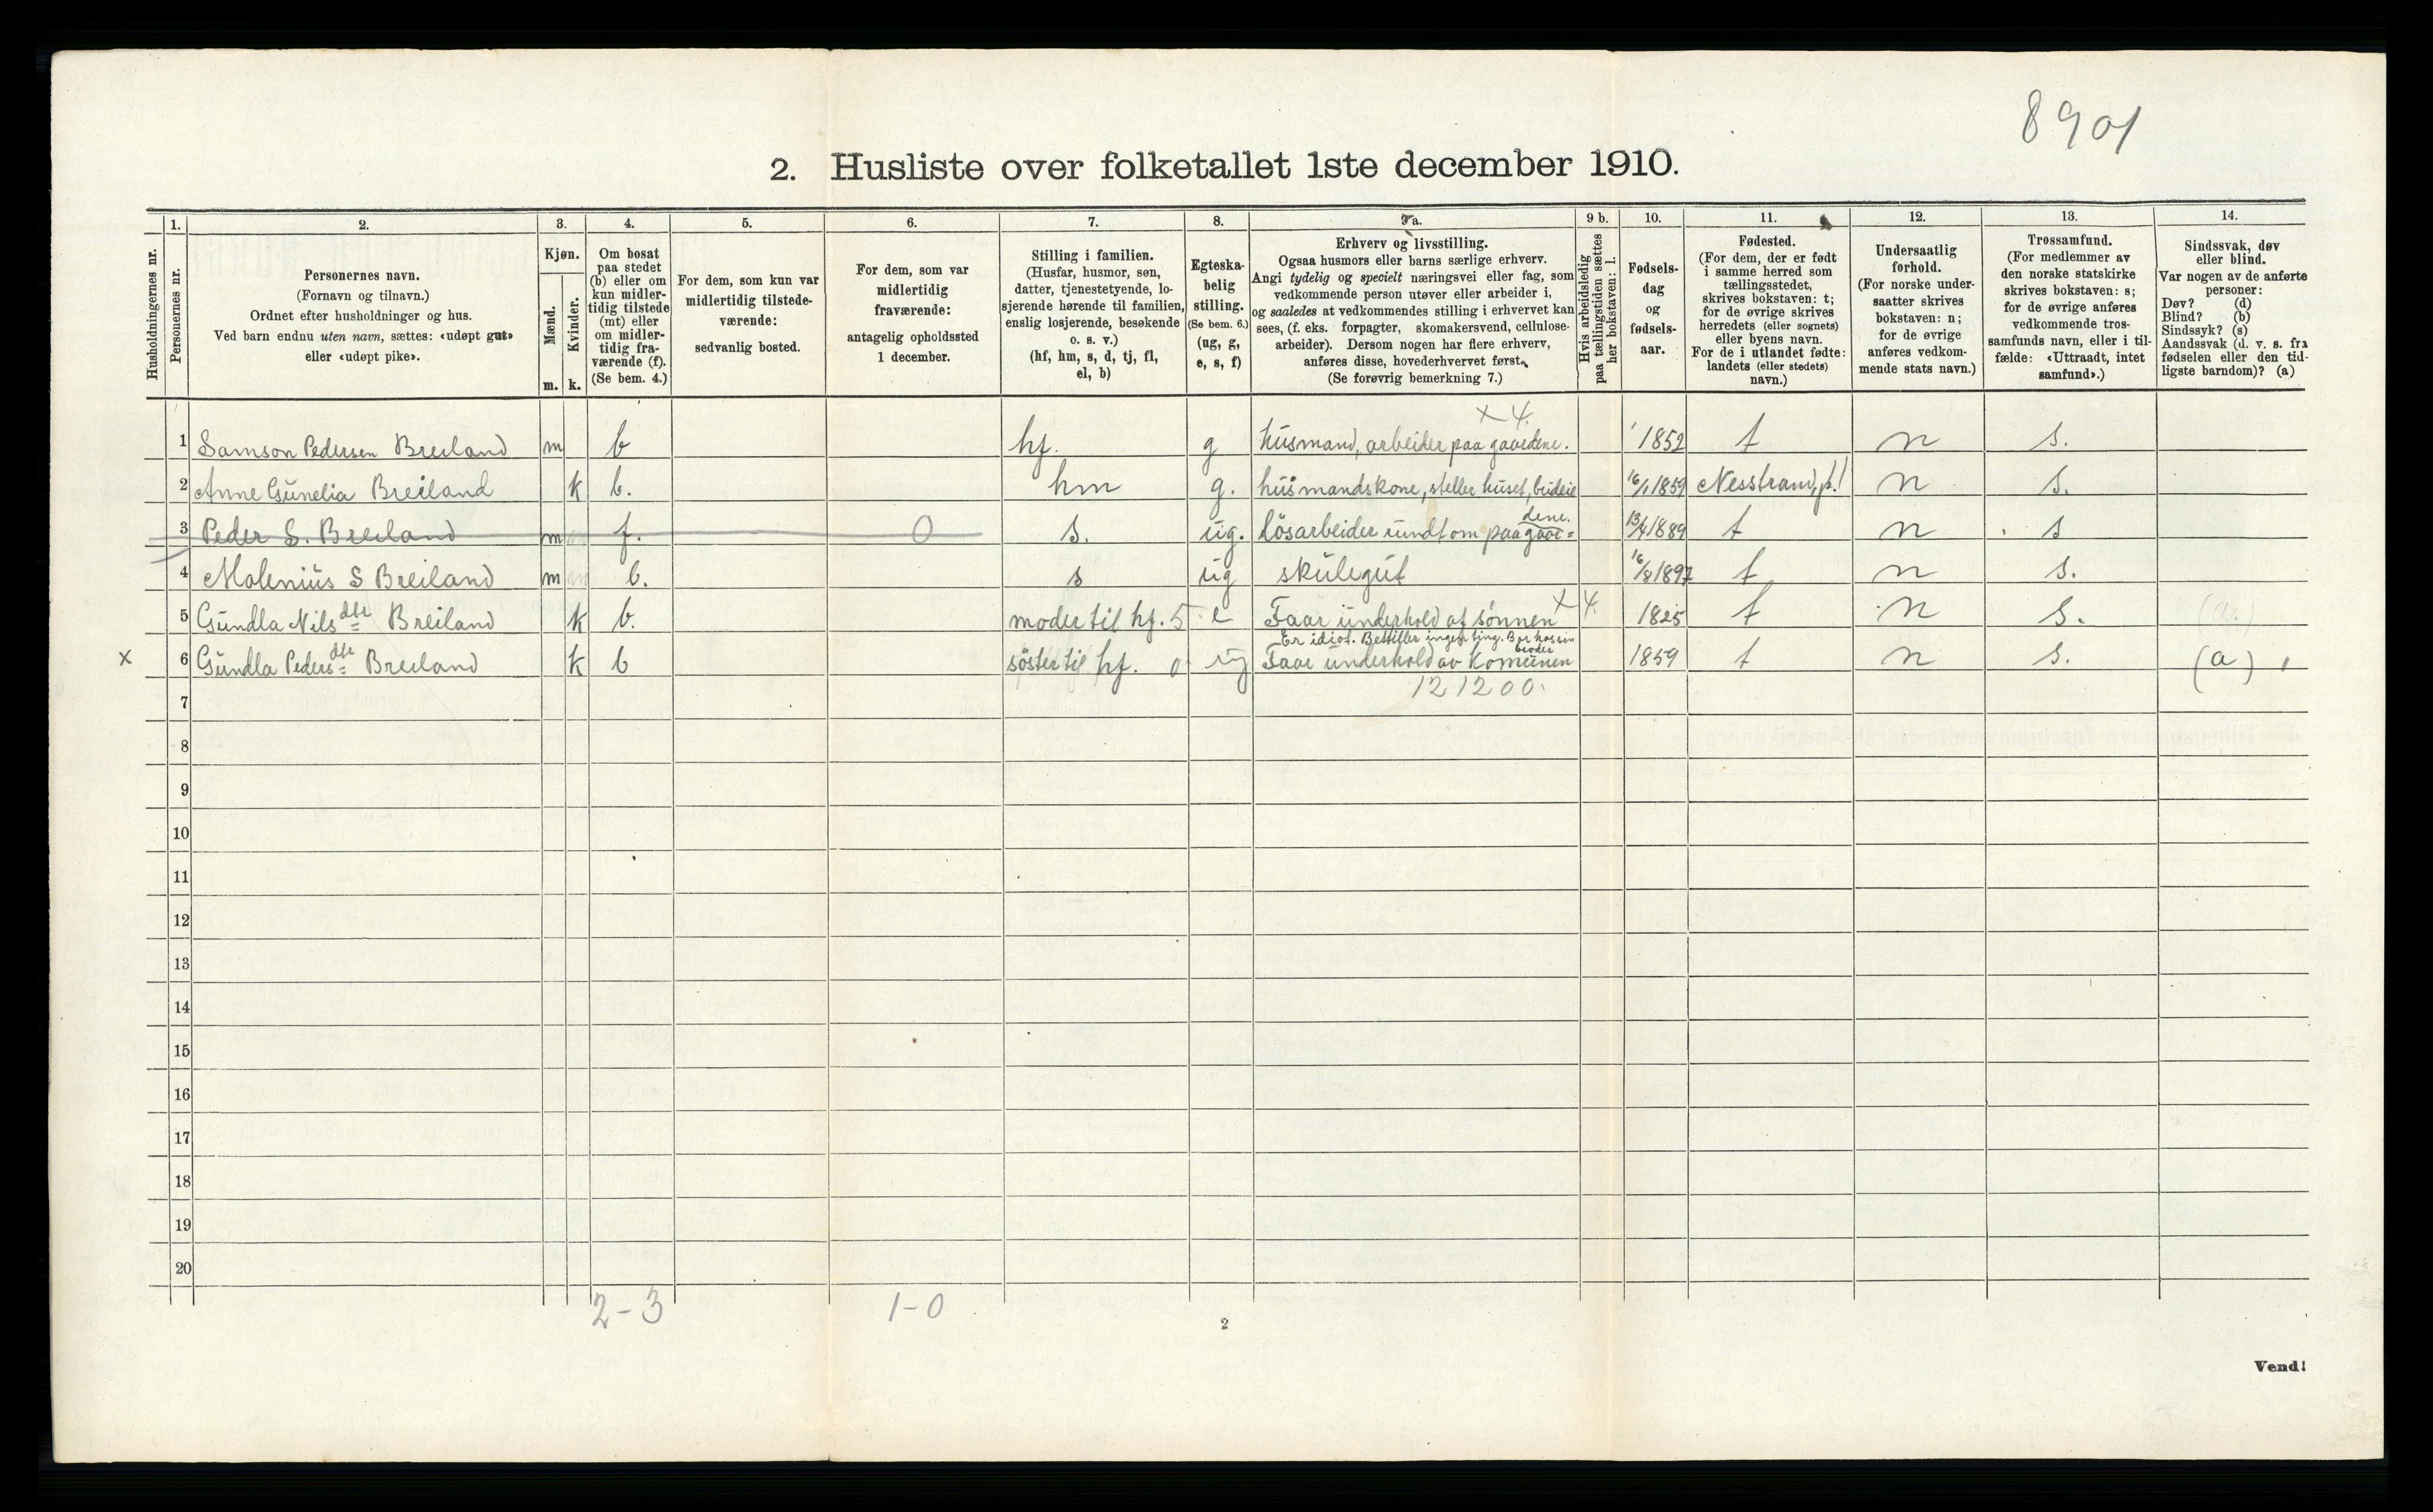 8901
2. Husliste over folketallet 1ste december 1910.
Husholdningernes nr.
1. Personernes nr.
2. Personernes navn. (Fornavn og tilnavn.) Ordnet efter husholdninger og hus. Ved barn endnu uten navn, sættes: «udøpt gut» eller «udøpt pike».
3. Kjøn. Mænd. m. Kvinder. k.
4. Om bosat paa stedet (b) eller om kun midlertidig tilstede (mt) eller om midlertidig fraværende (f). (Se bem. 4.)
5. For dem, som kun var midlertidig tilstedeværende: sedvanlig bosted.
6. For dem, som var midlertidig fraværende: antagelig opholdssted 1 december.
7. Stilling i familien. (Husfar, husmor, søn, datter, tjenestetyende, losjerende hørende til familien, enslig losjerende, besøkende o. s. v.) (hf, hm, s, d, tj, fl, el, b)
8. Egteskabelig stilling. (Se bem. 6.) (ug, g, e, s, f)
9 a. Erhverv og livsstilling. Ogsaa husmors eller barns særlige erhverv. Angi tydelig og specielt næringsvei eller fag, som vedkommende person utøver eller arbeider i, og saaledes at vedkommendes stilling i erhvervet kan sees, (f. eks. forpagter, skomakersvend, cellulosearbeider). Dersom nogen har flere erhverv, anføres disse, hovederhvervet først. (Se forøvrig bemerkning 7.)
9 b. Hvis arbeidsledig paa tællingstiden sættes her bokstaven: l.
10. Fødselsdag og fødselsaar.
11. Fødested. (For dem, der er født i samme herred som tællingsstedet, skrives bokstaven: t; for de øvrige skrives herredets (eller sognets) eller byens navn. For de i utlandet fødte: landets (eller stedets) navn.)
12. Undersaatlig forhold. (For norske undersaatter skrives bokstaven: n; for de øvrige anføres vedkommende stats navn.)
13. Trossamfund. (For medlemmer av den norske statskirke skrives bokstaven: s; for de øvrige anføres vedkommende trossamfunds navn, eller i tilfælde: «Uttraadt, intet samfund».)
14. Sindssvak, døv eller blind. Var nogen av de anførte personer: Døv? (d) Blind? (b) Sindssyk? (s) Aandssvak (d. v. s. fra fødselen eller den tidligste barndom)? (a)
x 4.
1 Samson Pedersen Breiland m b hf. g husmand, arbeider paa gaardene. 1852 t n s.
2 Anne Gunelia Breiland k b. hm g. husmandskone, steller huset, budeie 16/1 1859 Nesstrand, p.! n s.
3 Peder S. Breiland m f. 0 s. ug. lösarbeider rundt om paa gaar=dene. 13/4 1889 t n s
4 Malenius S Breiland m b. s ug skulegut 16/8 1897 t n s.
5 Gundla Nilsdtr Breiland k b. moder til hf. 5 e Faar underhold af sønnen x 4. 1825 t n s. (a.)
Er idiot. Bestiller ingen ting. Bor hos sin broder
x 6 Gundla Pedersdtr Breiland k b söster til hf. 0 ug Faar underhold av Komunen 1859 t n s. (a)
7 121200.
8
9
10
11
12
13
14
15
16
17
18
19
20
2-3 1-0
2
Vend!